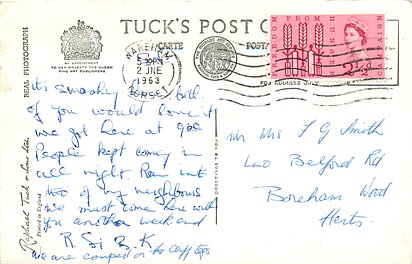 TUCK'S POST
CARTE POSTA
BY APPOINTMENT
TO HER MAJESTY THE QUEEN
FINE ART PUBLISHERS
WAREHAM
5 30PM
2 JNE
1963
DORSET
FREEDOM FROM
CAMPAIGN
2½d
REAL PHOTOGRAPH
Raphael Tuck & Sons Ltd
Printed in England
GREETINGS TO YOU
it's smashing both
If you would love it
we got here at 9oc
People kept coming in
all night. Ran into
two of my neighbours
we must come here with
you another weekend
R. Si B. K
we are camped on the Cliff tops
Mr Mrs F G Smith
Belford Rd
Boreham Wood
Herts.